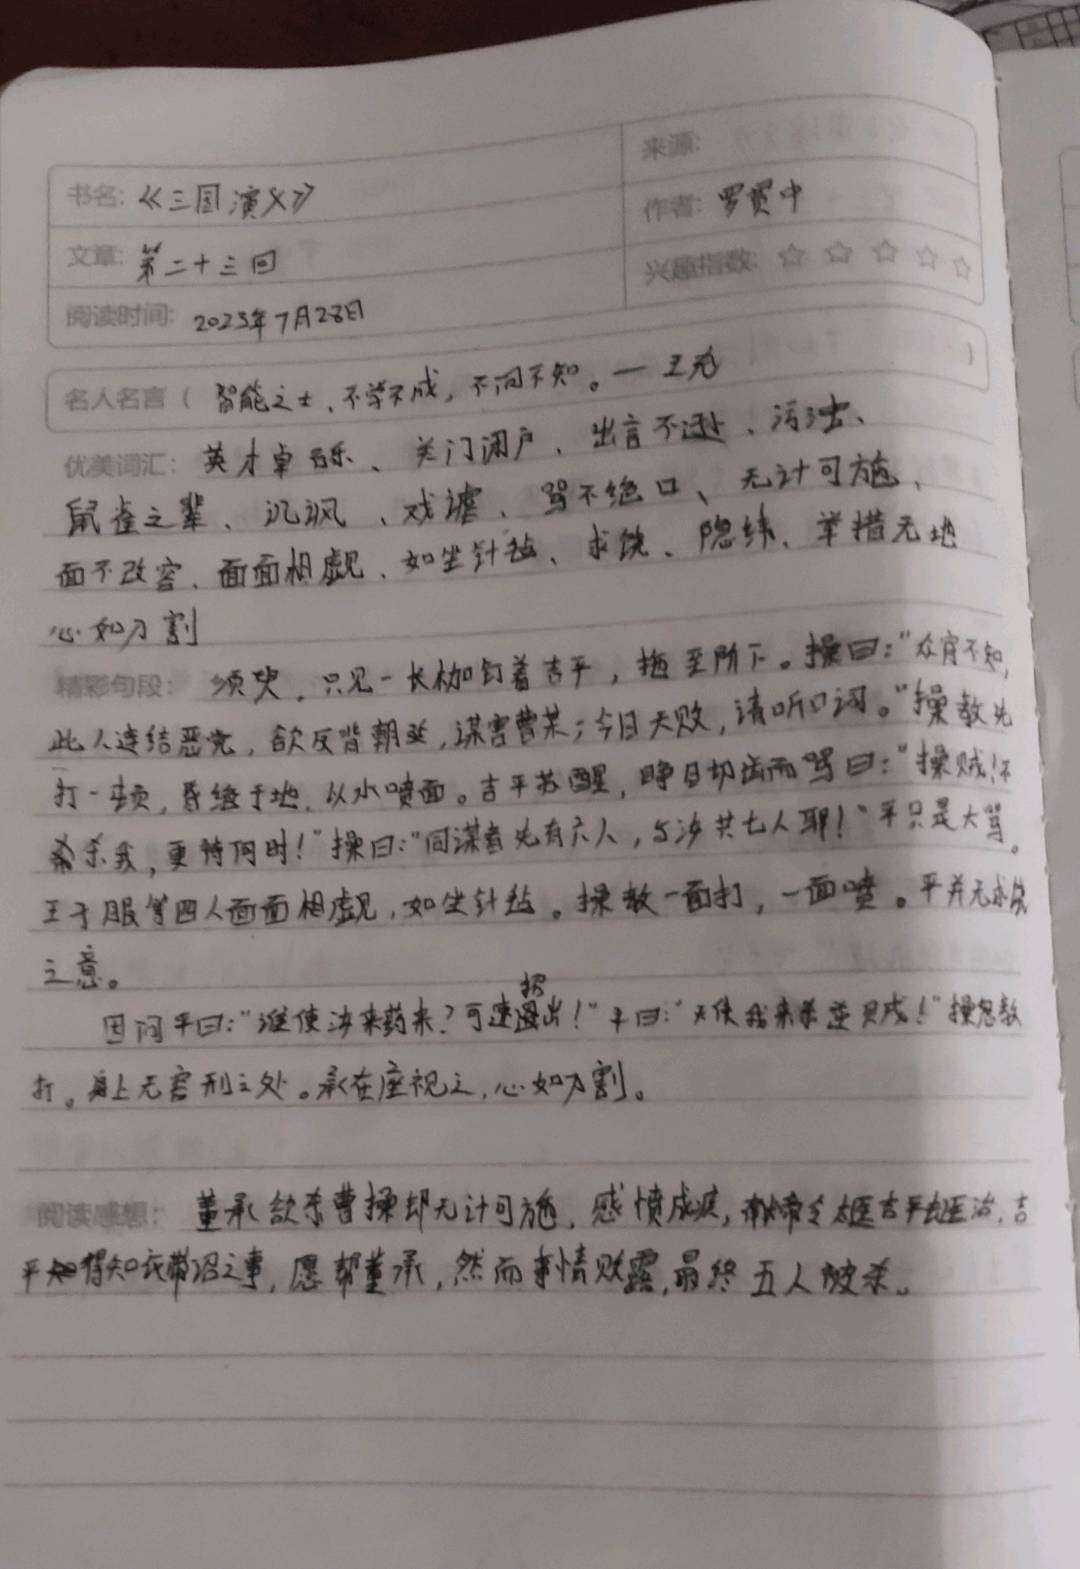 来源:
书名:《三国演义》
作者: 罗贯中
文章: 第二十三回
兴趣指数: ☆ ☆ ☆ ☆ ☆
阅读时间: 2023年7月28日
名人名言( 智能之士,不学不成,不问不知。—王充 )
优美词汇: 英才卓跞、关门闭户、出言不逊、污浊、
鼠雀之辈、沉沨、戏谑、骂不绝口、无计可施、
面不改容、面面相觑、如坐针毡、求饶、隐纬、举措无地
心如刀割
精彩句段: 须臾,只见一长枷钉着吉平,拖至阶下。操曰:“众官不知,
此人连结恶党,欲反背朝廷,谋害曹某;今日天败,请听口词。”操教先
打一顿,昏绝于地,以水喷面。吉平苏醒,睁目切齿而骂曰:“操贼!不
杀我,更待何时!”操曰:“同谋者先有六人,与汝共七人耶!”平只是大骂。
王子服等四人面面相觑,如坐针毡。操教一面打,一面喷。平并无求饶
之意。
因问平曰:“谁使汝来药来?可速招出!”平曰:“天使我来杀逆贼!”操怒教
打。身上无容刑之处。承在座视之,心如刀割。
阅读感想: 董承欲杀曹操却无计可施,感愤成疾,献帝令太医吉平去医治,吉
平得知衣带诏之事,愿帮董承,然而事情败露,最终五人被杀。